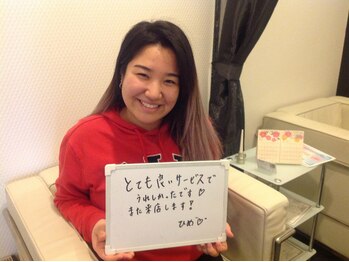 とても良いサービスで
うれしかったです♡
また来店します!
ひめ♡